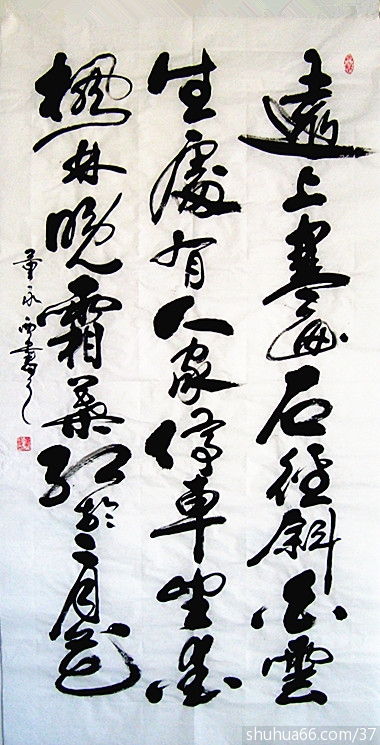 遠上寒山石径斜白雲
生處有人家停車坐愛
楓林晚霜葉紅於二月花
永書
shuhua66.com/37